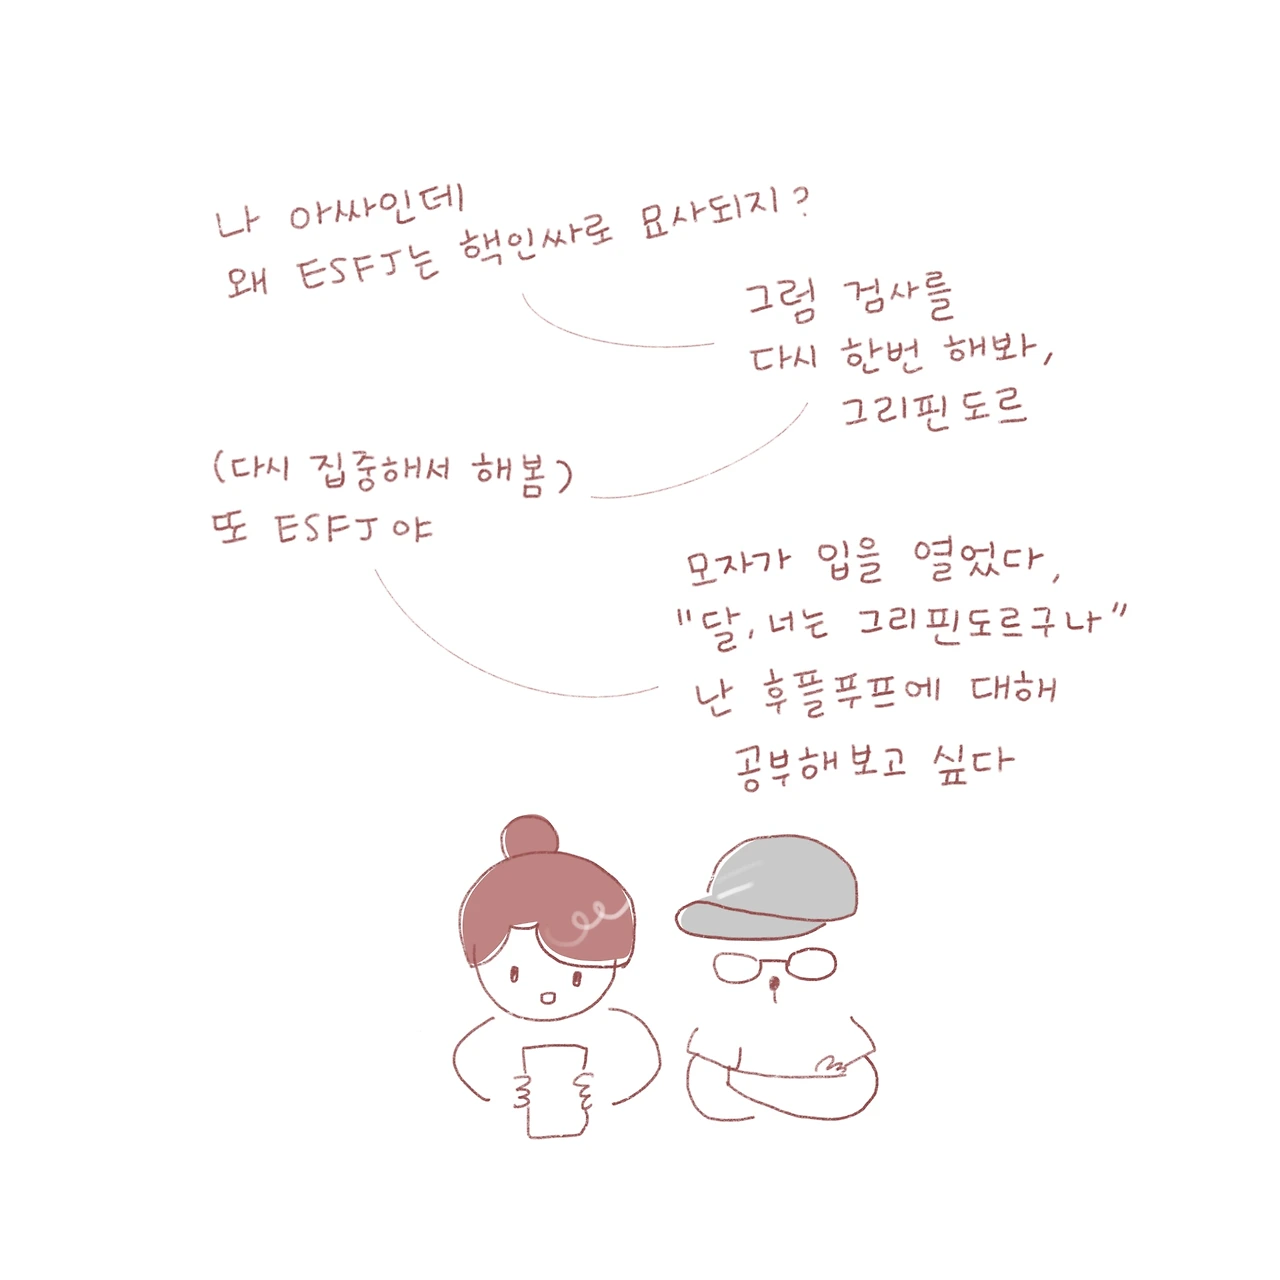 나 아싸인데
왜 ESFJ는 핵인싸로 묘사되지?
그럼 검사를
다시 한번 해봐,
그리핀도르
(다시 집중해서 해봄)
또 ESFJ야
모자가 입을 열었다,
"달, 너는 그리핀도르구나"
난 후플푸프에 대해
공부해보고 싶다